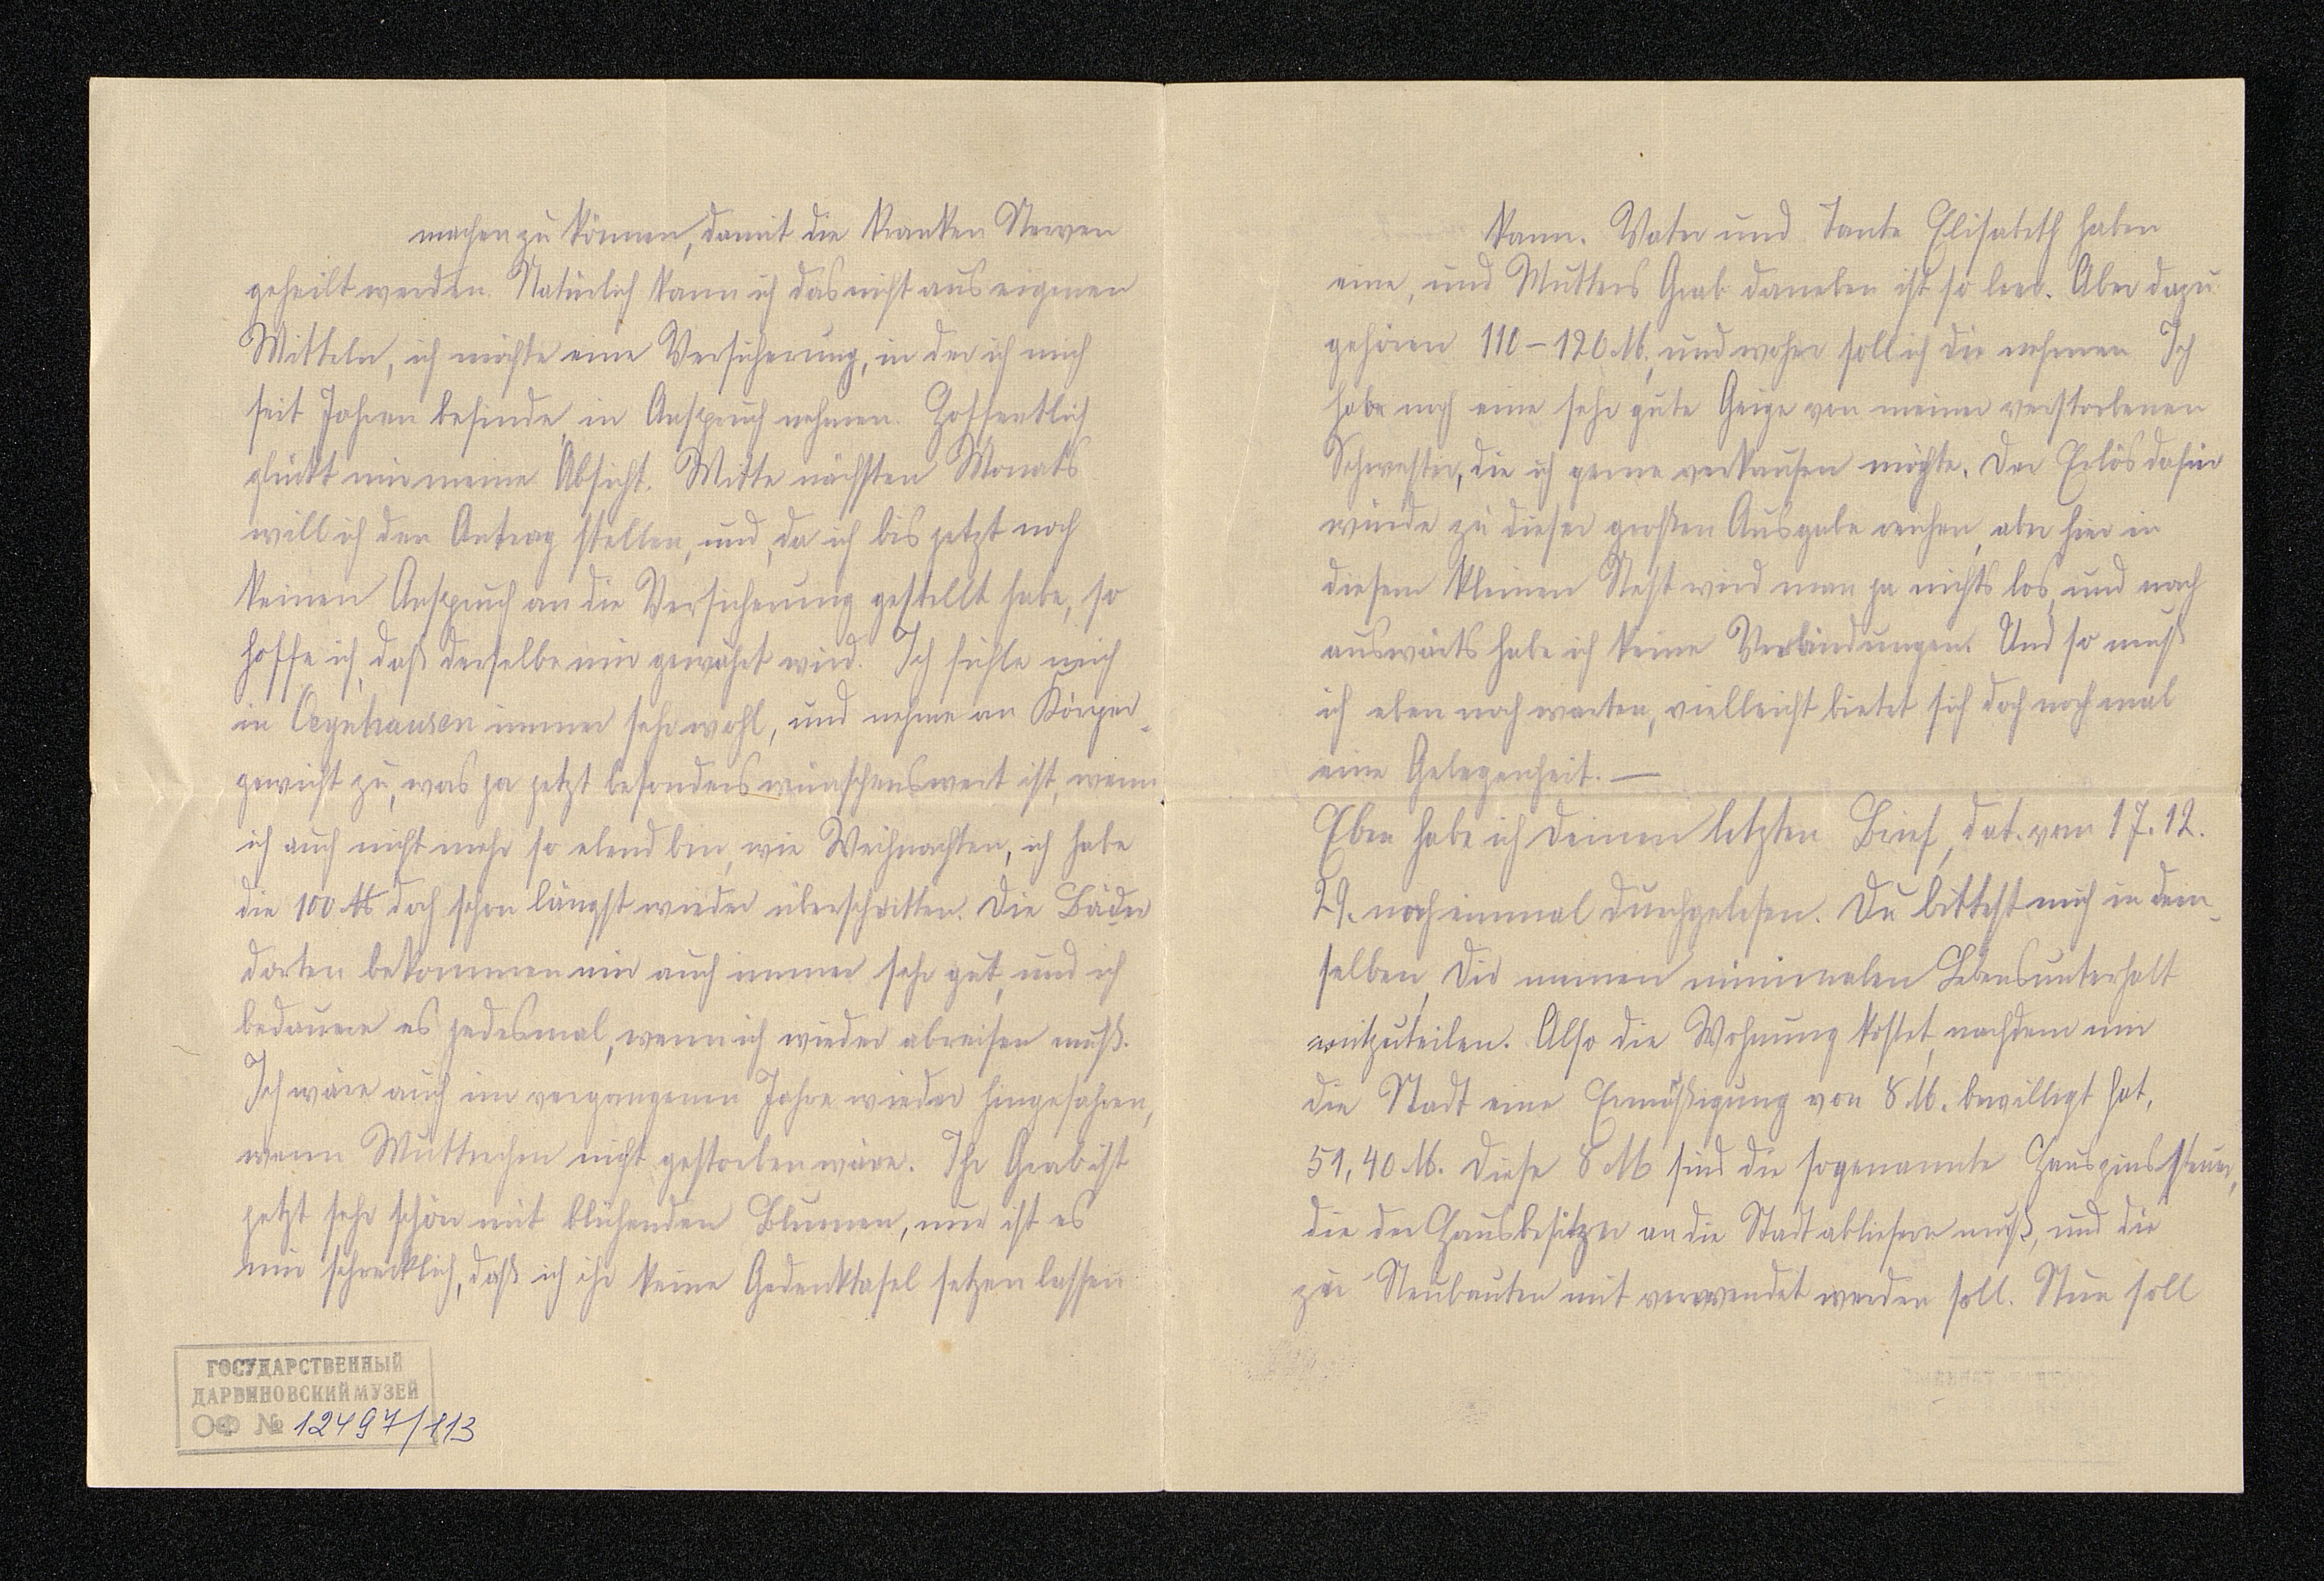 machen zu können, damit die kranken Nerven
geheilt werden. Natürlich kann ich das nicht aus eigenen
Mitteln, ich möchte eine Versicherung, in der ich mich
seit Jahren befinde, in Anspruch nehmen. Hoffentlich
glückt mir meine Absicht. Mitte nächsten Monats
will ich den Antrag stellen, und, da ich bis jetzt noch
keinen Anspruch an die Versicherung gestellt habe, so
hoffe ich, daß derselbe mir gewährt wird. Ich fühle mich
in Oeynhausen immer sehr wohl, und nehme an Körper-
gewicht zu, was ja jetzt besonders wünschenswert ist, wenn
ich auch nicht mehr so elend bin, wie Weihnachten, ich habe
die 100 ℔ doch schon längst wieder überschritten. Die Bäder
dorten bekommen mir auch immer sehr gut, und ich
bedauere es jedesmal, wenn ich wieder abreisen muß.
Ich wäre auch im vergangenen Jahre wieder hingefahren,
wenn Mutterchen nicht gestorben wäre. Ihr Grab ist
jetzt sehr schön mit blühenden Blumen, nur ist es
mir schrecklich, daß ich ihr keine Gedenktafel setzen lassen
ГОСУДАРСТВЕННЫЙ
ДАРВИНОВСКИЙ МУЗЕЙ
ОФ № 12497/113
kann. Vater und Tante Elisabeth haben
eine, und Mutters Grab daneben ist so leer. Aber dazu
gehören 110-120 M, und woher soll ich die nehmen. Ich
habe noch eine sehr gute Geige von meiner verstorbenen
Schwester, die ich gerne verkaufen möchte. Der Erlös dafür
würde zu dieser großen Ausgabe reichen, aber hier in
diesem kleinen Nest wird man ja nichts los, und nach
auswärts habe ich keine Verbindungen. Und so muß
ich eben noch warten, vielleicht bietet sich doch noch mal
eine Gelegenheit. —
Eben habe ich Deinen letzten Brief, dat. vom 17.12.
29. noch einmal durchgelesen. Du bittest mich in dem-
selben, Dir meinen minimalen Lebensunterhalt
mitzuteilen. Also die Wohnung kostet, nachdem mir
die Stadt eine Ermäßigung von 8 M. bewilligt hat,
51,40 M. Diese 8 M sind die sogenannte Hauszinssteuer,
die der Hausbesitzer an die Stadt abliefern muß, und die
zu Neubauten mit verwendet werden soll. Nun soll